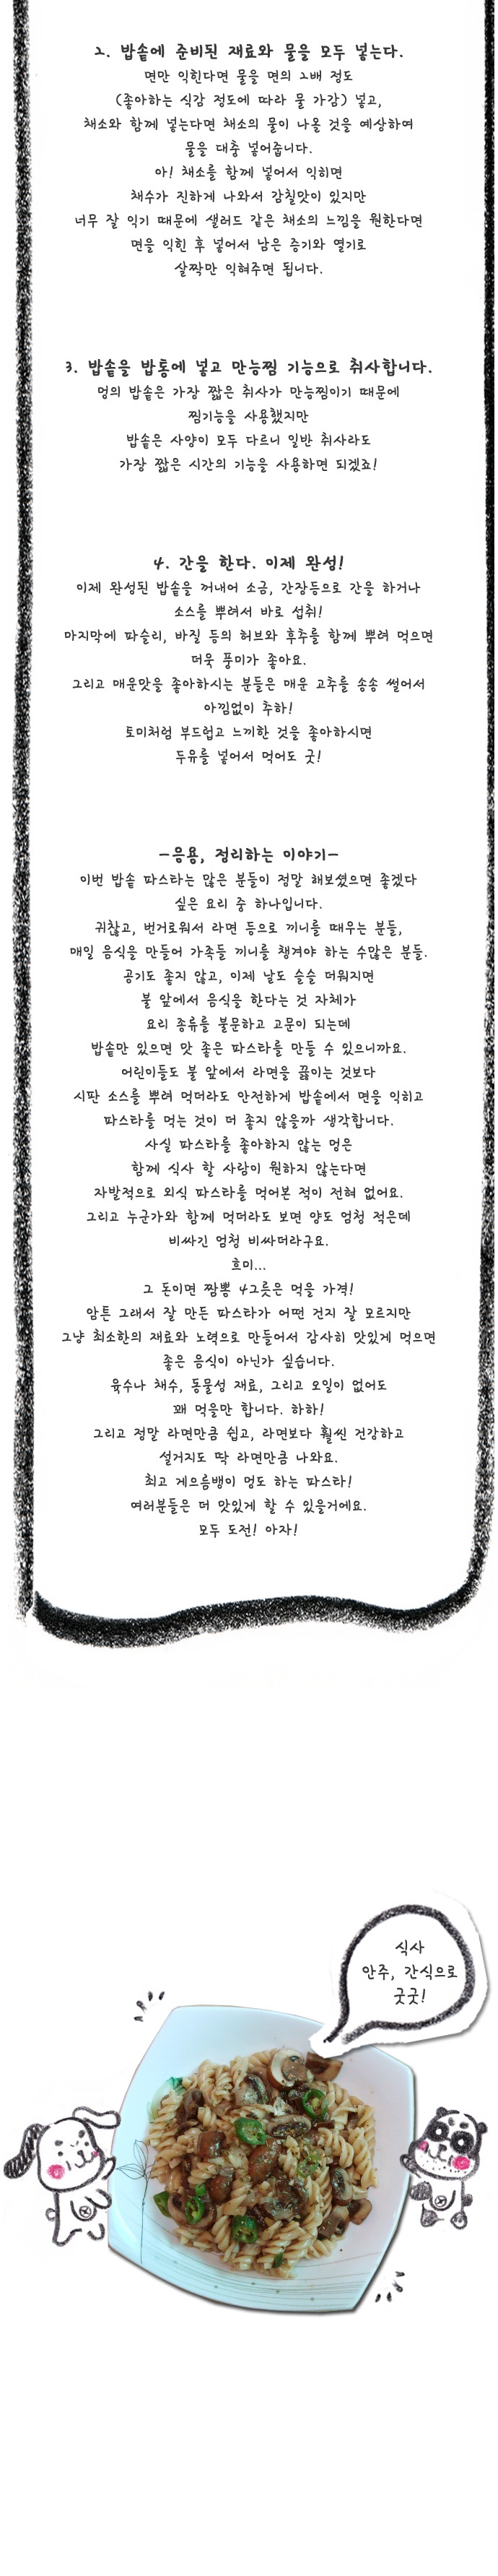 2. 밥솥에 준비된 재료와 물을 모두 넣는다.
면만 익힌다면 물을 면의 2배 정도
(좋아하는 식감 정도에 따라 물 가감) 넣고,
채소와 함께 넣는다면 채소의 물이 나올 것을 예상하여
물을 대충 넣어줍니다.
아! 채소를 함께 넣어서 익히면
채수가 진하게 나와서 감칠맛이 있지만
너무 잘 익기 때문에 샐러드 같은 채소의 느낌을 원한다면
면을 익힌 후 넣어서 남은 증기와 열기로
살짝만 익혀주면 됩니다.
3. 밥솥을 밥통에 넣고 만능찜 기능으로 취사합니다.
멍의 밥솥은 가장 짧은 취사가 만능찜이기 때문에
찜기능을 사용했지만
밥솥은 사양이 모두 다르니 일반 취사라도
가장 짧은 시간의 기능을 사용하면 되겠죠!
4. 간을 한다. 이제 완성!
이제 완성된 밥솥을 꺼내어 소금, 간장등으로 간을 하거나
소스를 뿌려서 바로 섭취!
마지막에 파슬리, 바질 등의 허브와 후추를 함께 뿌려 먹으면
더욱 풍미가 좋아요.
그리고 매운맛을 좋아하시는 분들은 매운 고추를 송송 썰어서
아낌없이 추하!
토미처럼 부드럽고 느끼한 것을 좋아하시면
두유를 넣어서 먹어도 굿!
-응용, 정리하는 이야기-
이번 밥솥 파스타는 많은 분들이 정말 해보셨으면 좋겠다
싶은 요리 중 하나입니다.
귀찮고, 번거로워서 라면 등으로 끼니를 때우는 분들,
매일 음식을 만들어 가족들 끼니를 챙겨야 하는 수많은 분들.
공기도 좋지 않고, 이제 날도 슬슬 더워지면
불 앞에서 음식을 한다는 것 자체가
요리 종류를 불문하고 고문이 되는데
밥솥만 있으면 맛 좋은 파스타를 만들 수 있으니까요.
어린이들도 불 앞에서 라면을 끓이는 것보다
시판 소스를 뿌려 먹더라도 안전하게 밥솥에서 면을 익히고
파스타를 먹는 것이 더 좋지 않을까 생각합니다.
사실 파스타를 좋아하지 않는 멍은
함께 식사 할 사람이 원하지 않는다면
자발적으로 외식 파스타를 먹어본 적이 전혀 없어요.
그리고 누군가와 함께 먹더라도 보면 양도 엄청 적은데
비싸긴 엄청 비싸더라구요.
흐미...
그 돈이면 짬뽕 4그릇은 먹을 가격!
암튼 그래서 잘 만든 파스타가 어떤 건지 잘 모르지만
그냥 최소한의 재료와 노력으로 만들어서 감사히 맛있게 먹으면
좋은 음식이 아닌가 싶습니다.
육수나 채수, 동물성 재료, 그리고 오일이 없어도
꽤 먹을만 합니다. 하하!
그리고 정말 라면만큼 쉽고, 라면보다 훨씬 건강하고
설거지도 딱 라면만큼 나와요.
최고 게으름뱅이 멍도 하는 파스타!
여러분들은 더 맛있게 할 수 있을거에요.
모두 도전! 아자!
식사
안주, 간식으로
굿굿!